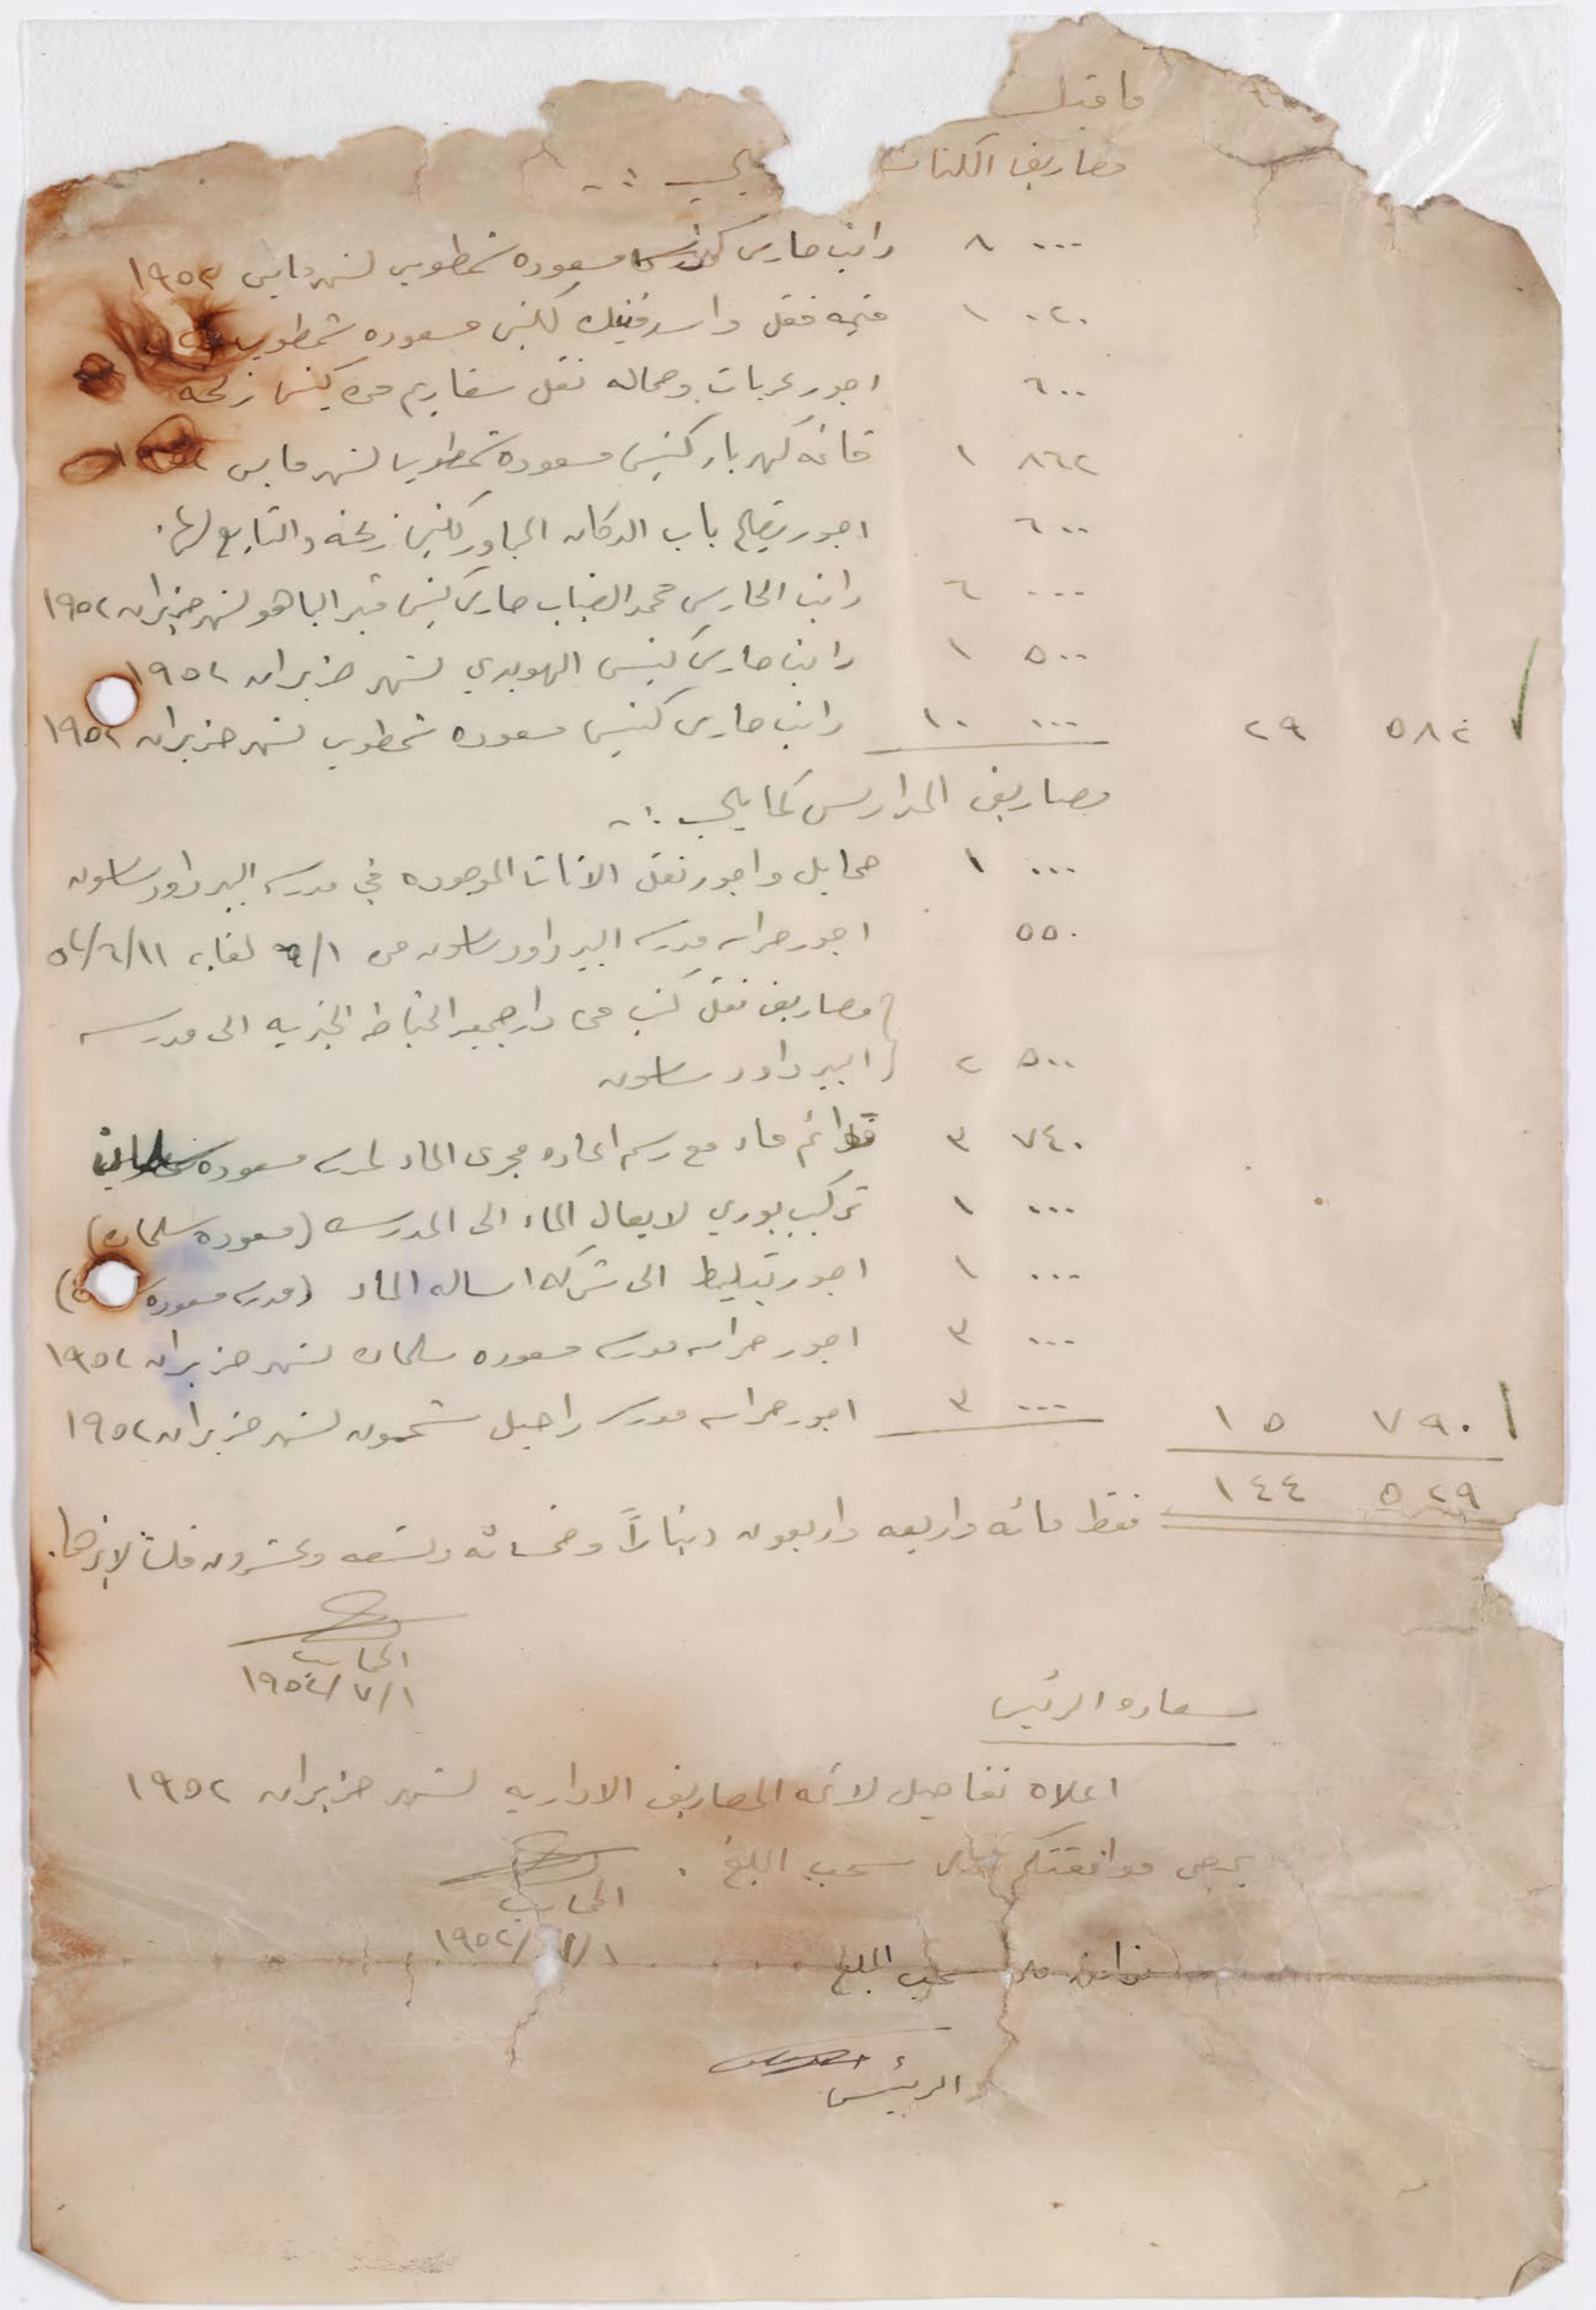 ما قبله
مصاريف الكنائس يلي :-
٠٠٠ ٨ راتب حارس كنيس مسعوده شمطوب لشهر مايس ١٩٥٢
٠٢٠ ١ قيمة قفل واسفنيك لكنيس مسعوده شمطوب
٦٠٠ اجور عربات وحماله نقل سفاريم من كنيس زلخه
٨٦٢ ١ قائمة كهرباء كنيس مسعوده شمطوب لشهر مايس ١٩٥٢
٦٠٠ اجور تصليح باب الدكان المجاور لكنيس زلخه والتابع لها.
٠٠٠ ٦ راتب الحارس محمد الضباب حارس كنيس قبر الباهو لشهر حزيران ١٩٥٢
٥٠٠ ١ راتب حارس كنيس الهويدي لشهر حزيران ١٩٥٢
٥٨٢ ٢٩ ٠٠٠ ١٠ راتب حارس كنيس مسعوده شمطوب لشهر حزيران ١٩٥٢
مصاريف المدارس كما يلي :-
٠٠٠ ١ حمايل واجور نقل الاثاث الموجوده في مدرسه البير داود ساسون
٥٥٠ اجور حراسه مدرسه البير داود ساسون من ٦/١ لغايه ٥٢/٦/١١
مصاريف نقل كتب من دار جمعيه الخياطه الخيريه الى مدرسه
٥٠٠ ٢ البير داود ساسون
٧٤٠ ٣ قوائم ماء مع رسم اعاده مجرى الماء لمدرسه مسعوده سلمان
٠٠٠ ١ تركيب بوري لايصال الماء الى المدرسه (مسعوده سلمان)
٠٠٠ ١ اجور تبليط الى شركه اساله الماء (مدرسه مسعوده
٠٠٠ ٣ اجور حراسه مدرسه مسعوده سلمان لشهر حزيران ١٩٥٢
٧٩٠ ١٥ ٠٠٠ ٣ اجور حراسه مدرسه راحيل شحمون لشهر حزيران ١٩٥٢
٥٢٩ ١٤٤
فقط مائه واربعه واربعون ديناراً وخمسمائه وتسعه وعشرون فلسا لاغيرها.
المحاسب
١٩٥٢/٧/١
سعاده الرئيس
اعلاه تفاصيل لائحه المصاريف الاداريه لشهر حزيران ١٩٥٢
يرجى موافقتكم على سحب المبلغ .
المحاسب
١٩٥٢/٧/١
نوافق على سحب المبلغ
الرئيس